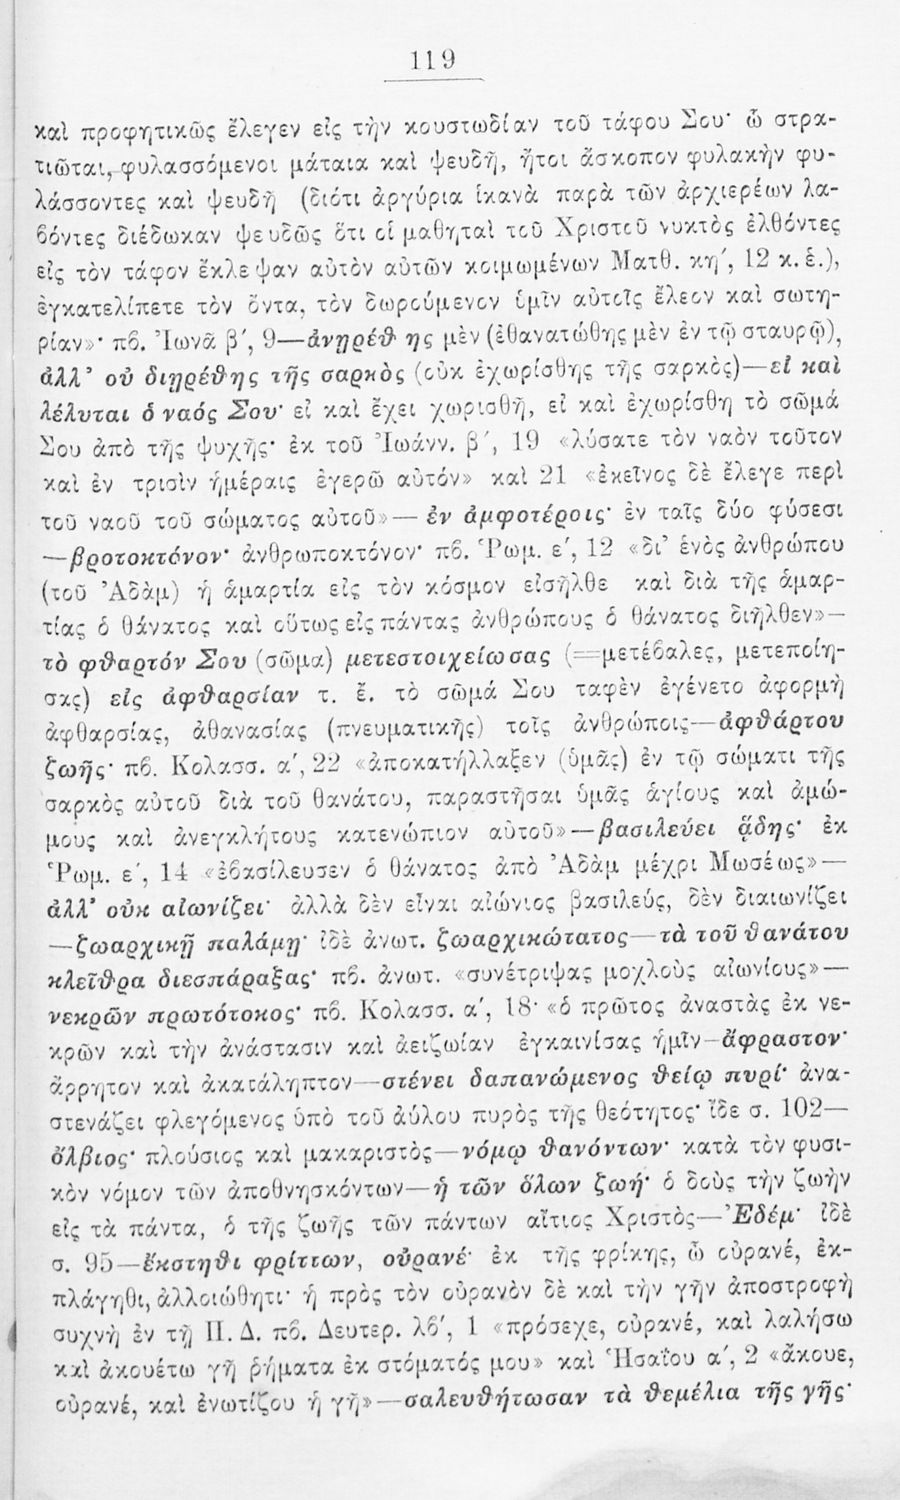 119
καὶ προφητικῶς ἔλεγεν εἰς τὴν κουστωδίαν τοῦ τάφου Σου· ὦ στρα-
τιῶται, φυλασσόμενοι μάταια καὶ ψευδῆ, ἤτοι ἄσκοπον φυλακὴν φυ-
λάσσοντες καὶ ψευδῆ (διότι ἀργύρια ἱκανὰ παρὰ τῶν ἀρχιερέων λα-
βόντες διέδωκαν ψευδῶς ὅτι οἱ μαθηταὶ τοῦ Χριστοῦ νυκτὸς ἐλθόντες
εἰς τὸν τάφον ἔκλεψαν αὐτὸν αὐτῶν κοιμωμένων Ματθ. κη΄, 12 κ. ἑ.),
ἐγκατελίπετε τὸν ὄντα, τὸν δωρούμενον ὑμῖν αὐτοῖς ἔλεον καὶ σωτη-
ρίαν»· πβ. Ἰωνᾶ β΄, 9—ἀνῃρέθης μὲν (ἐθανατώθης μὲν ἐν τῷ σταυρῷ),
ἀλλ' οὐ διῃρέθης τῆς σαρκὸς (οὐκ ἐχωρίσθης τῆς σαρκὸς)—εἰ καὶ
λέλυται ὁ ναός Σου· εἰ καὶ ἔχει χωρισθῆ, εἰ καὶ ἐχωρίσθη τὸ σῶμά
Σου ἀπὸ τῆς ψυχῆς· ἐκ τοῦ Ἰωάνν. β΄, 19 «λύσατε τὸν ναὸν τοῦτον
καὶ ἐν τρισὶν ἡμέραις ἐγερῶ αὐτόν» καὶ 21 «ἐκεῖνος δὲ ἔλεγε περὶ
τοῦ ναοῦ τοῦ σώματος αὐτοῦ»—ἐν ἀμφοτέροις· ἐν ταῖς δύο φύσεσι
—βροτοκτόνον· ἀνθρωποκτόνον· πβ. Ῥωμ. ε΄, 12 «δι' ἑνὸς ἀνθρώπου
(τοῦ Ἀδὰμ) ἡ ἁμαρτία εἰς τὸν κόσμον εἰσῆλθε καὶ διὰ τῆς ἁμαρ-
τίας ὁ θάνατος καὶ οὕτως εἰς πάντας ἀνθρώπους ὁ θάνατος διῆλθεν»—
τὸ φθαρτόν Σου (σῶμα) μετεστοιχείωσας (=μετέβαλες, μετεποίη-
σας) εἰς ἀφθαρσίαν τ. ἔ. τὸ σῶμά Σου ταφὲν ἐγένετο ἀφορμὴ
ἀφθαρσίας, ἀθανασίας (πνευματικῆς) τοῖς ἀνθρώποις—ἀφθάρτου
ζωῆς· πβ. Κολασσ. α΄, 22 «ἀποκατήλλαξεν (ὑμᾶς) ἐν τῷ σώματι τῆς
σαρκὸς αὐτοῦ διὰ τοῦ θανάτου, παραστῆσαι ὑμᾶς ἁγίους καὶ ἀμώ-
μους καὶ ἀνεγκλήτους κατενώπιον αὐτοῦ»—βασιλεύει ᾅδης· ἐκ
Ῥωμ. ε΄, 14 «ἐβασίλευσεν ὁ θάνατος ἀπὸ Ἀδὰμ μέχρι Μωσέως»—
ἀλλ' οὐκ αἰωνίζει· ἀλλὰ δὲν εἶναι αἰώνιος βασιλεύς, δὲν διαιωνίζει
—ζωαρχικῇ παλάμῃ· ἰδὲ ἀνωτ. ζωαρχικώτατος—τὰ τοῦ θανάτου
κλεῖθρα διεσπάραξας· πβ. ἀνωτ. «συνέτριψας μοχλοὺς αἰωνίους»—
νεκρῶν πρωτότοκος· πβ. Κολασσ. α΄, 18· «ὁ πρῶτος ἀναστὰς ἐκ νε-
κρῶν καὶ τὴν ἀνάστασιν καὶ ἀειζωίαν ἐγκαινίσας ἡμῖν—ἄφραστον·
ἄρρητον καὶ ἀκατάληπτον—στένει δαπανώμενος θείῳ πυρί· ἀνα-
στενάζει φλεγόμενος ὑπὸ τοῦ ἀύλου πυρὸς τῆς θεότητος· ἴδε σ. 102—
ὄλβιος· πλούσιος καὶ μακαριστὸς—νόμῳ θανόντων· κατὰ τὸν φυσι-
κὸν νόμον τῶν ἀποθνησκόντων—ἡ τῶν ὅλων ζωή· ὁ δοὺς τὴν ζωὴν
εἰς τὰ πάντα, ὁ τῆς ζωῆς τῶν πάντων αἴτιος Χριστὸς—Ἐδέμ· ἰδὲ
σ. 95—ἔκστηθι φρίττων, οὐρανέ· ἐκ τῆς φρίκης, ὦ οὐρανέ, ἐκ-
πλάγηθι, ἀλλοιώθητι· ἡ πρὸς τὸν οὐρανὸν δὲ καὶ τὴν γῆν ἀποστροφὴ
συχνὴ ἐν τῇ Π. Δ. πβ. Δευτερ. λβ΄, 1 «πρόσεχε, οὐρανέ, καὶ λαλήσω
καὶ ἀκουέτω γῆ ῥήματα ἐκ στόματός μου» καὶ Ἡσαΐου α΄, 2 «ἄκουε,
οὐρανέ, καὶ ἐνωτίζου ἡ γῆ»—σαλευθήτωσαν τὰ θεμέλια τῆς γῆς·